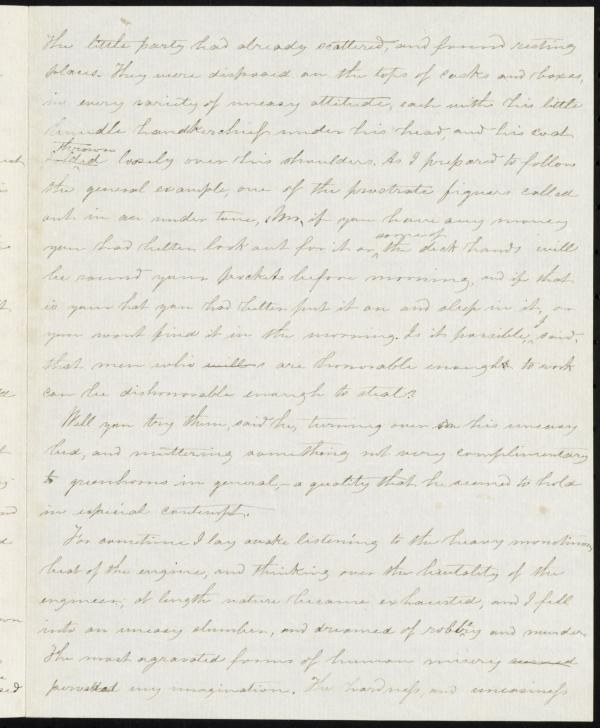 The little party had already scattered, and found resting
places. They were disposed on the tops of casks and boxes,
in every variety of uneasy attitude, each with his little
bundle handkerchief under his head, and his coat
thrown
folded loosely over his shoulders. As I prepared to follow
the general example, one of the prostrate figures called
out in an under tone, if you have any money
some of
you had better look out for it or the deck hands will
be round your pockets before morning, and if that
is your hat you had better put it on and sleep in it, or
you wont find it in the morning. Is it possible, I said,
that men who are honorable enough to work
can be dishonorable enough to steal?
Well you try them, said he, turning over in his uneasy
bed, and muttering something not very complimentary
to greenhorns in general,- a quality that he seemed to hold
in especial contempt.
For sometime I lay awake listening to the heavy monotinous
beat of the engine, and thinking over the brutality of the
engineer, at length nature became exhausted, and I fell
into an uneasy slumber, and dreamed of robbry and murder.
The most agravated forms of human misery seemed
my imagination. The hardness, and uneasiness